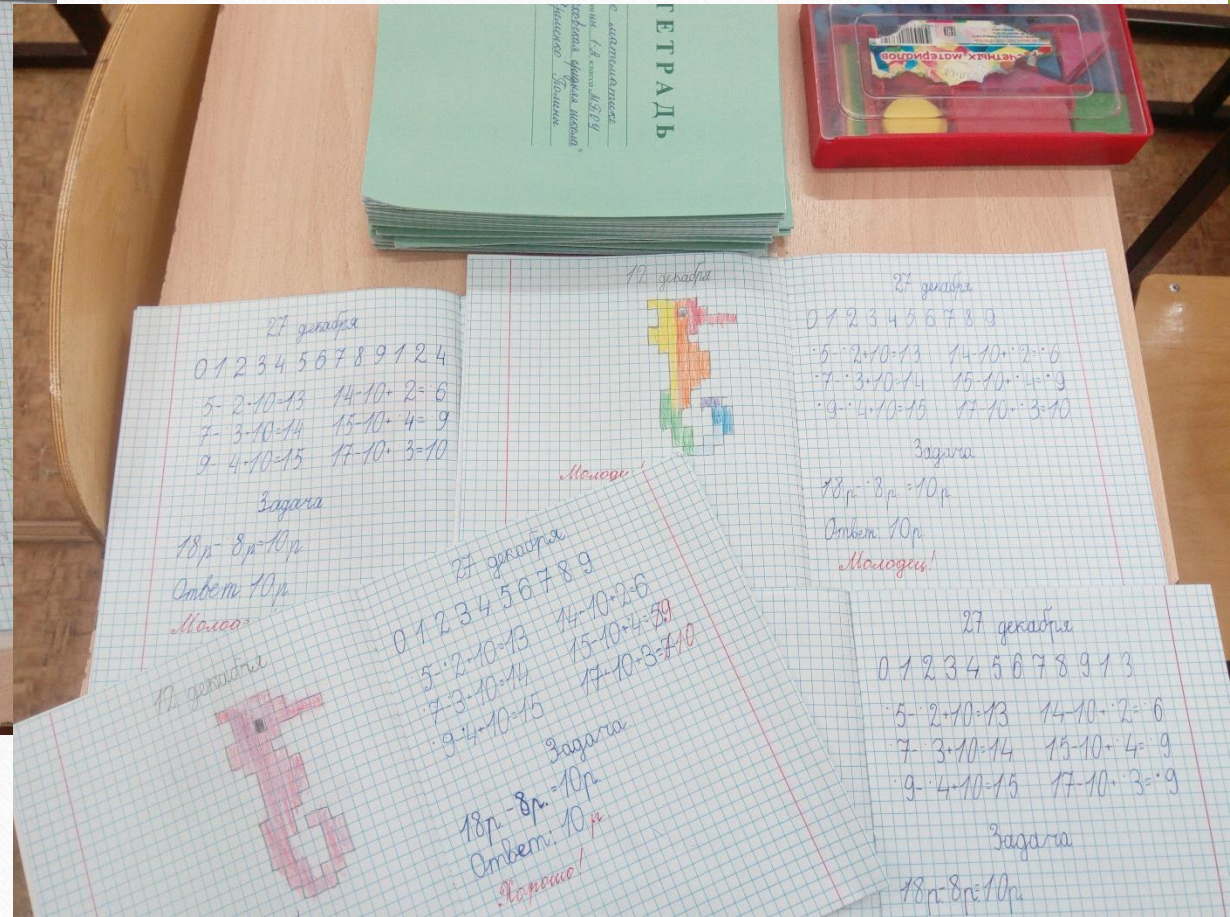 ТЕТРАДЬ
математике
1 "Я" класса МБОУ
средняя школа"
Полины
счетных материалов
27 декабря
0 1 2 3 4 5 6 7 8 9 1 2 4
5- 2+10=13 14-10+ 2= 6
7- 3+10=14 15-10+ 4= 9
9- 4+10=15 17-10+ 3=10
Задача
18р- 8р=10р.
Ответ: 10р.
12 декабря
Молодец!
27 декабря
0 1 2 3 4 5 6 7 8 9
5- 2+10=13 14-10+ 2= 6
7- 3+10=14 15-10+ 4= 9
9- 4+10=15 17-10+ 3=10
Задача
18р- 8р.=10р.
Ответ: 10р.
Молодец!
12 декабря
27 декабря
0 1 2 3 4 5 6 7 8 9
5- 2+10=13 14-10+2=6
7-3+10=14 15-10+4=9
9-4+10=15 17-10+3=10
Задача
18р.-8р.=10р.
Ответ: 10 р
Хорошо!
27 декабря
0 1 2 3 4 5 6 7 8 9 1 3
5- 2+10=13 14-10+ 2= 6
7- 3+10=14 15-10+ 4= 9
9- 4+10=15 17-10+ 3= 9
Задача
18р.-8р.=10р.